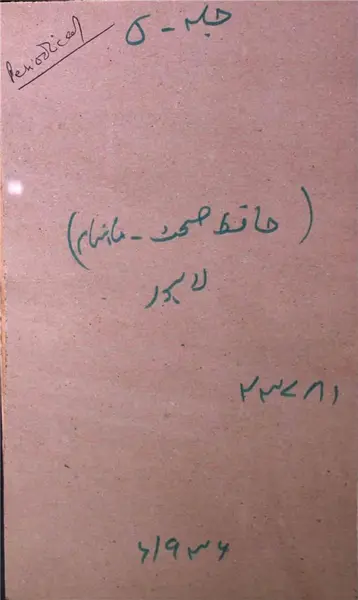 Periodical
جلد - ۵
(حافظ صحت - ماہنامہ)
لاہور
۲۳۷۸۱
۱۹۳۶ء